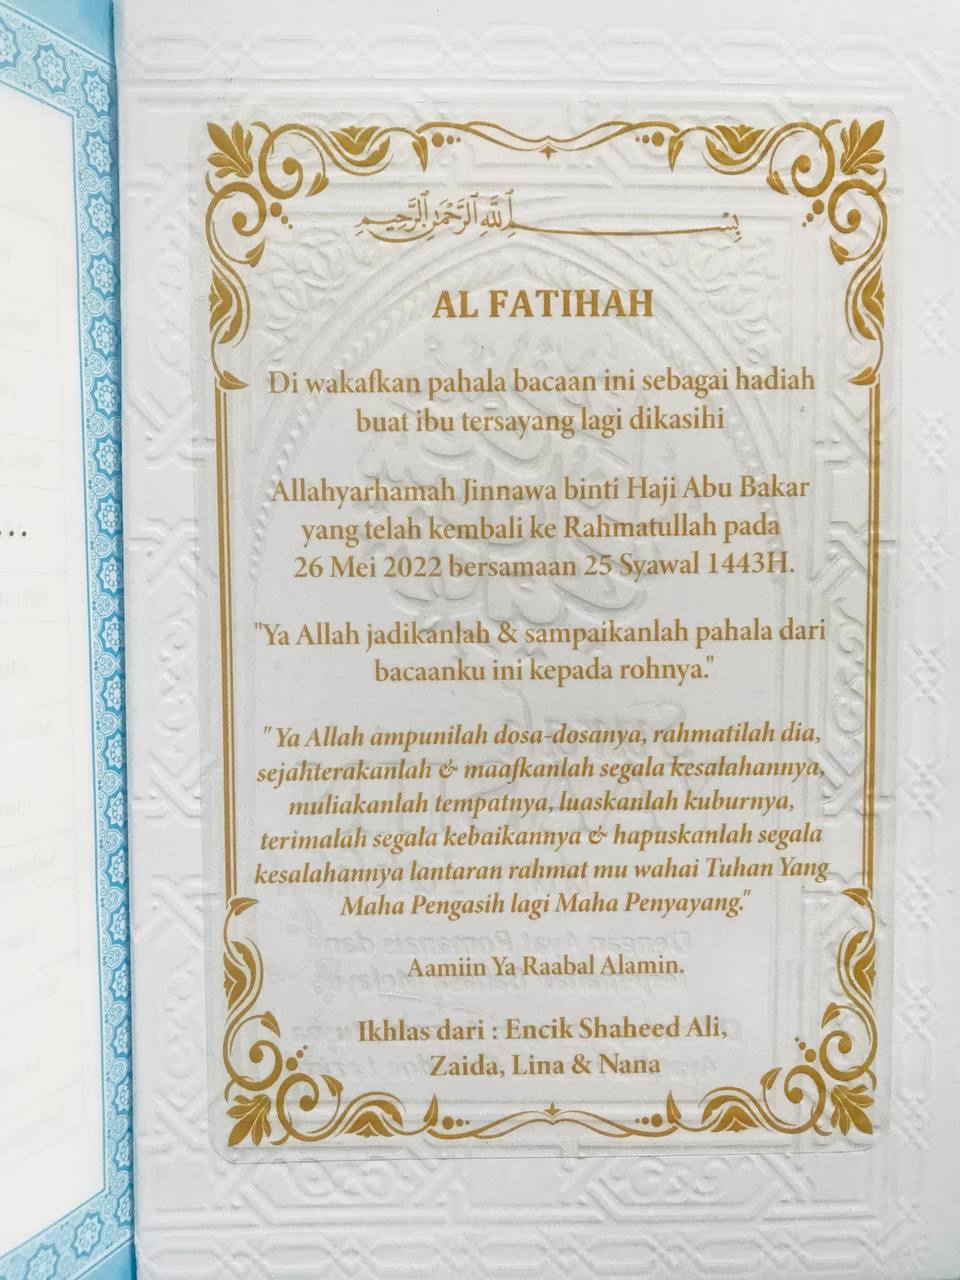 بِسْمِ ٱللَّهِ ٱلرَّحْمَٰنِ ٱلرَّحِيمِ
AL FATIHAH
Di wakafkan pahala bacaan ini sebagai hadiah
buat ibu tersayang lagi dikasihi
Allahyarhamah Jinnawa binti Haji Abu Bakar
yang telah kembali ke Rahmatullah pada
26 Mei 2022 bersamaan 25 Syawal 1443H.
"Ya Allah jadikanlah & sampaikanlah pahala dari
bacaanku ini kepada rohnya."
"Ya Allah ampunilah dosa-dosanya, rahmatilah dia,
sejahterakanlah & maafkanlah segala kesalahannya,
muliakanlah tempatnya, luaskanlah kuburnya,
terimalah segala kebaikannya & hapuskanlah segala
kesalahannya lantaran rahmat mu wahai Tuhan Yang
Maha Pengasih lagi Maha Penyayang."
Aamiin Ya Raabal Alamin.
Ikhlas dari : Encik Shaheed Ali,
Zaida, Lina & Nana